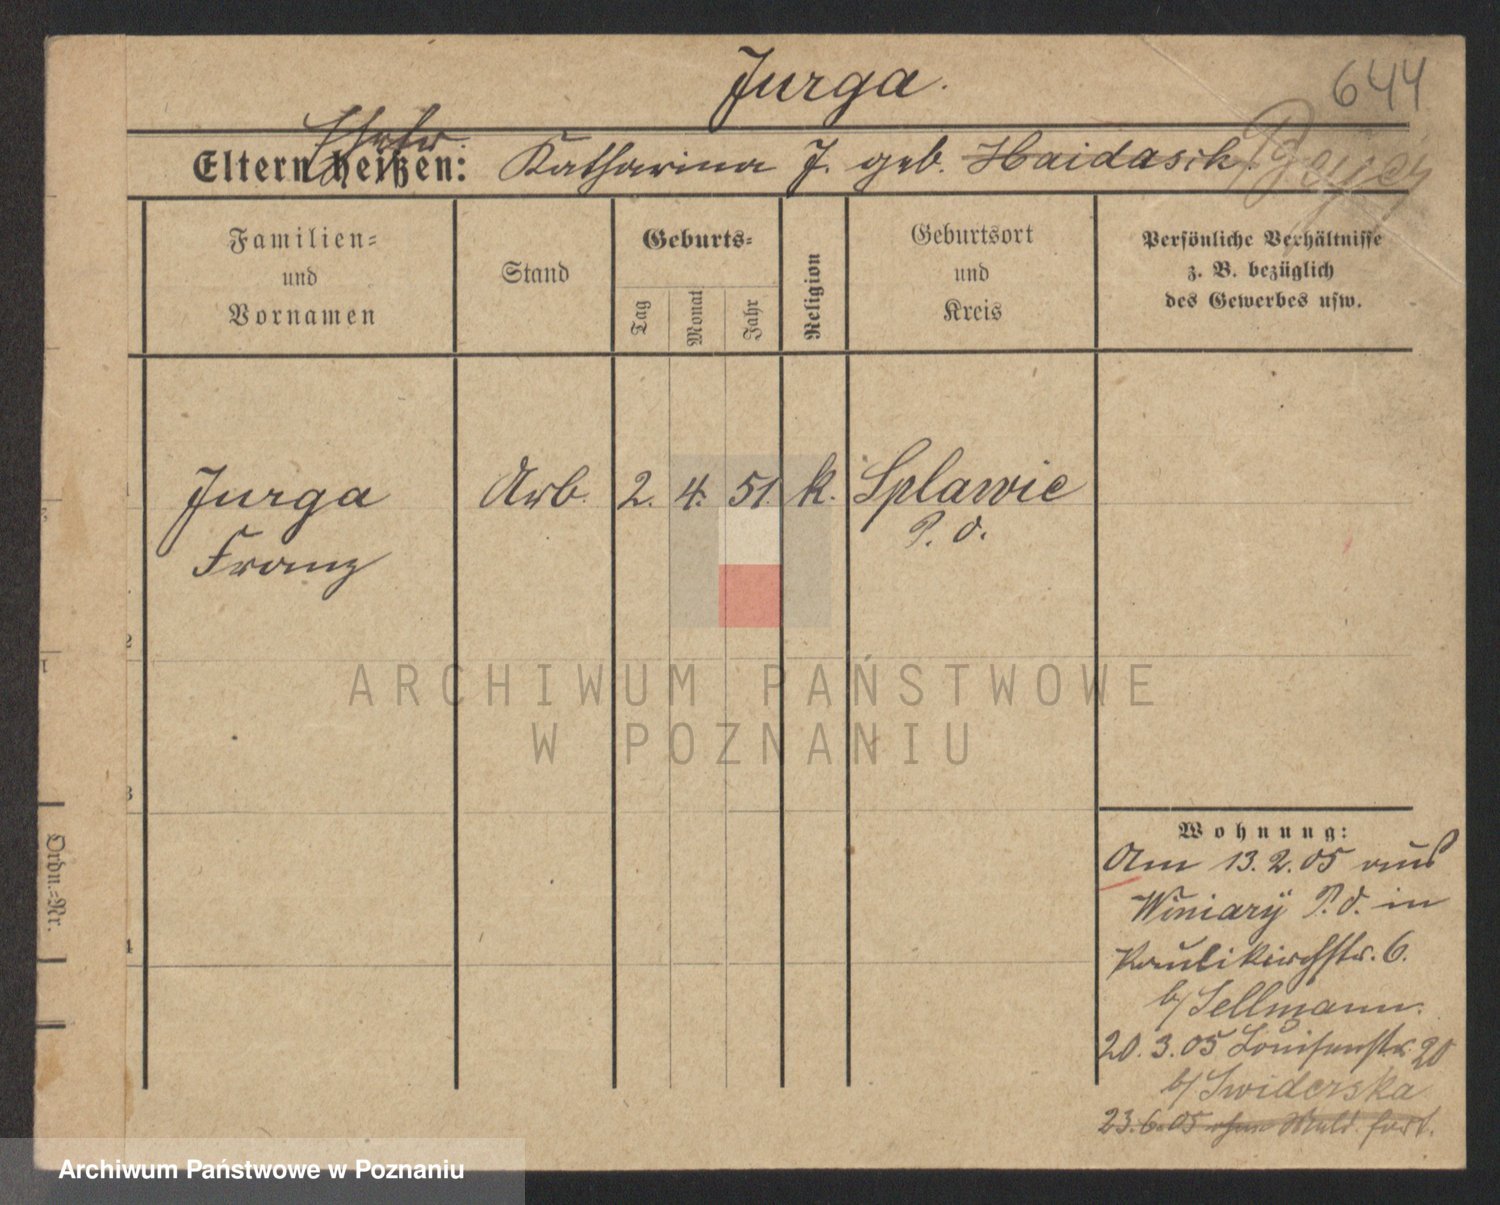 644
Jurga.
Ehefr.
Eltern heißen: Katharina J. geb. Haidasch.
Familien=
und
Vornamen
Stand
Geburts=
Tag
Monat
Jahr
Religion
Geburtsort
und
Kreis
Persönliche Verhältnisse
z. B. bezüglich
des Gewerbes usw.
Jurga Arb. 2. 4. 51. k. Splawie
Franz P. O.
2
3
4
Ordn.=Nr.
Wohnung:
Am 13.2.05 aus
Winiary P.O. in
Paulikirchstr. 6.
b/ Sellmann.
20.3.05 Louisenstr. 20
b/ Swiderska
23.6.05 ohne Meld. fort.
ARCHIWUM PAŃSTWOWE
W POZNANIU
Archiwum Państwowe w Poznaniu